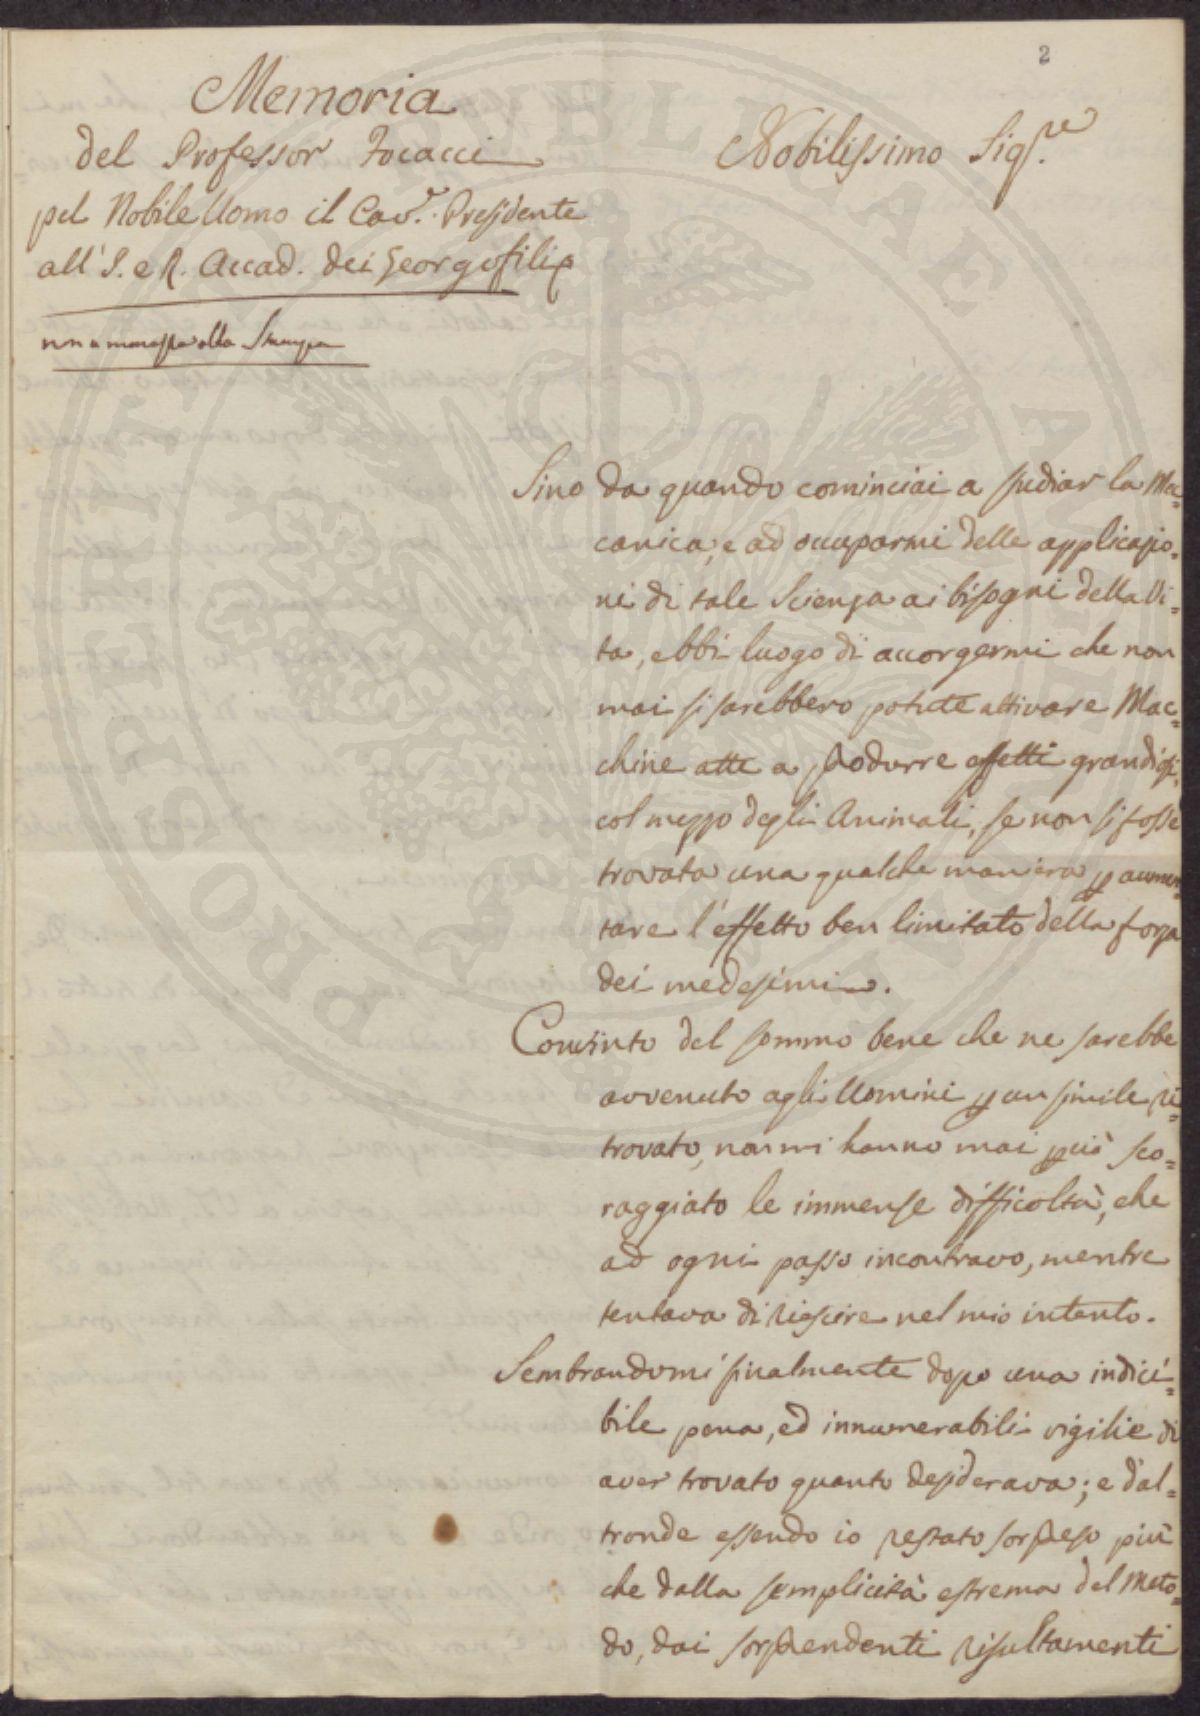 2
Memoria
del Professor Focacci
pel Nobile Uomo il Cav.r Presidente
all'I. e R. Accad. dei Georgofili
non ammessa alla Stampa
Nobilissimo Sigr.e
Sino da quando cominciai a studiar la Mec=
canica, e ad occuparmi delle applicazio=
ni di tale Scienza ai bisogni della Vi=
ta, ebbi luogo di accorgermi che non
mai si sarebbero potute attivare Mac=
chine atte a produrre effetti grandiosi,
col mezzo degli Animali, se non si fosse
trovata una qualche maniera p aumen=
tare l'effetto ben limitato della forza
dei medesimi.
Convinto del sommo bene che ne sarebbe
avvenuto agli Uomini p un simile ri=
trovato, non mi hanno mai pciò sco=
raggiato le immense difficoltà, che
ad ogni passo incontravo, mentre
tentava di riescire nel mio intento.
Sembrandomi finalmente dopo una indici=
bile pena, ed innumerabili vigilie di
aver trovato quanto desiderava; e d'al=
tronde essendo io restato sorpreso più
che dalla semplicità estrema del Meto=
do, dai sorprendenti risultamenti
PROSPERITATI PUBLICAE AUGENDAE